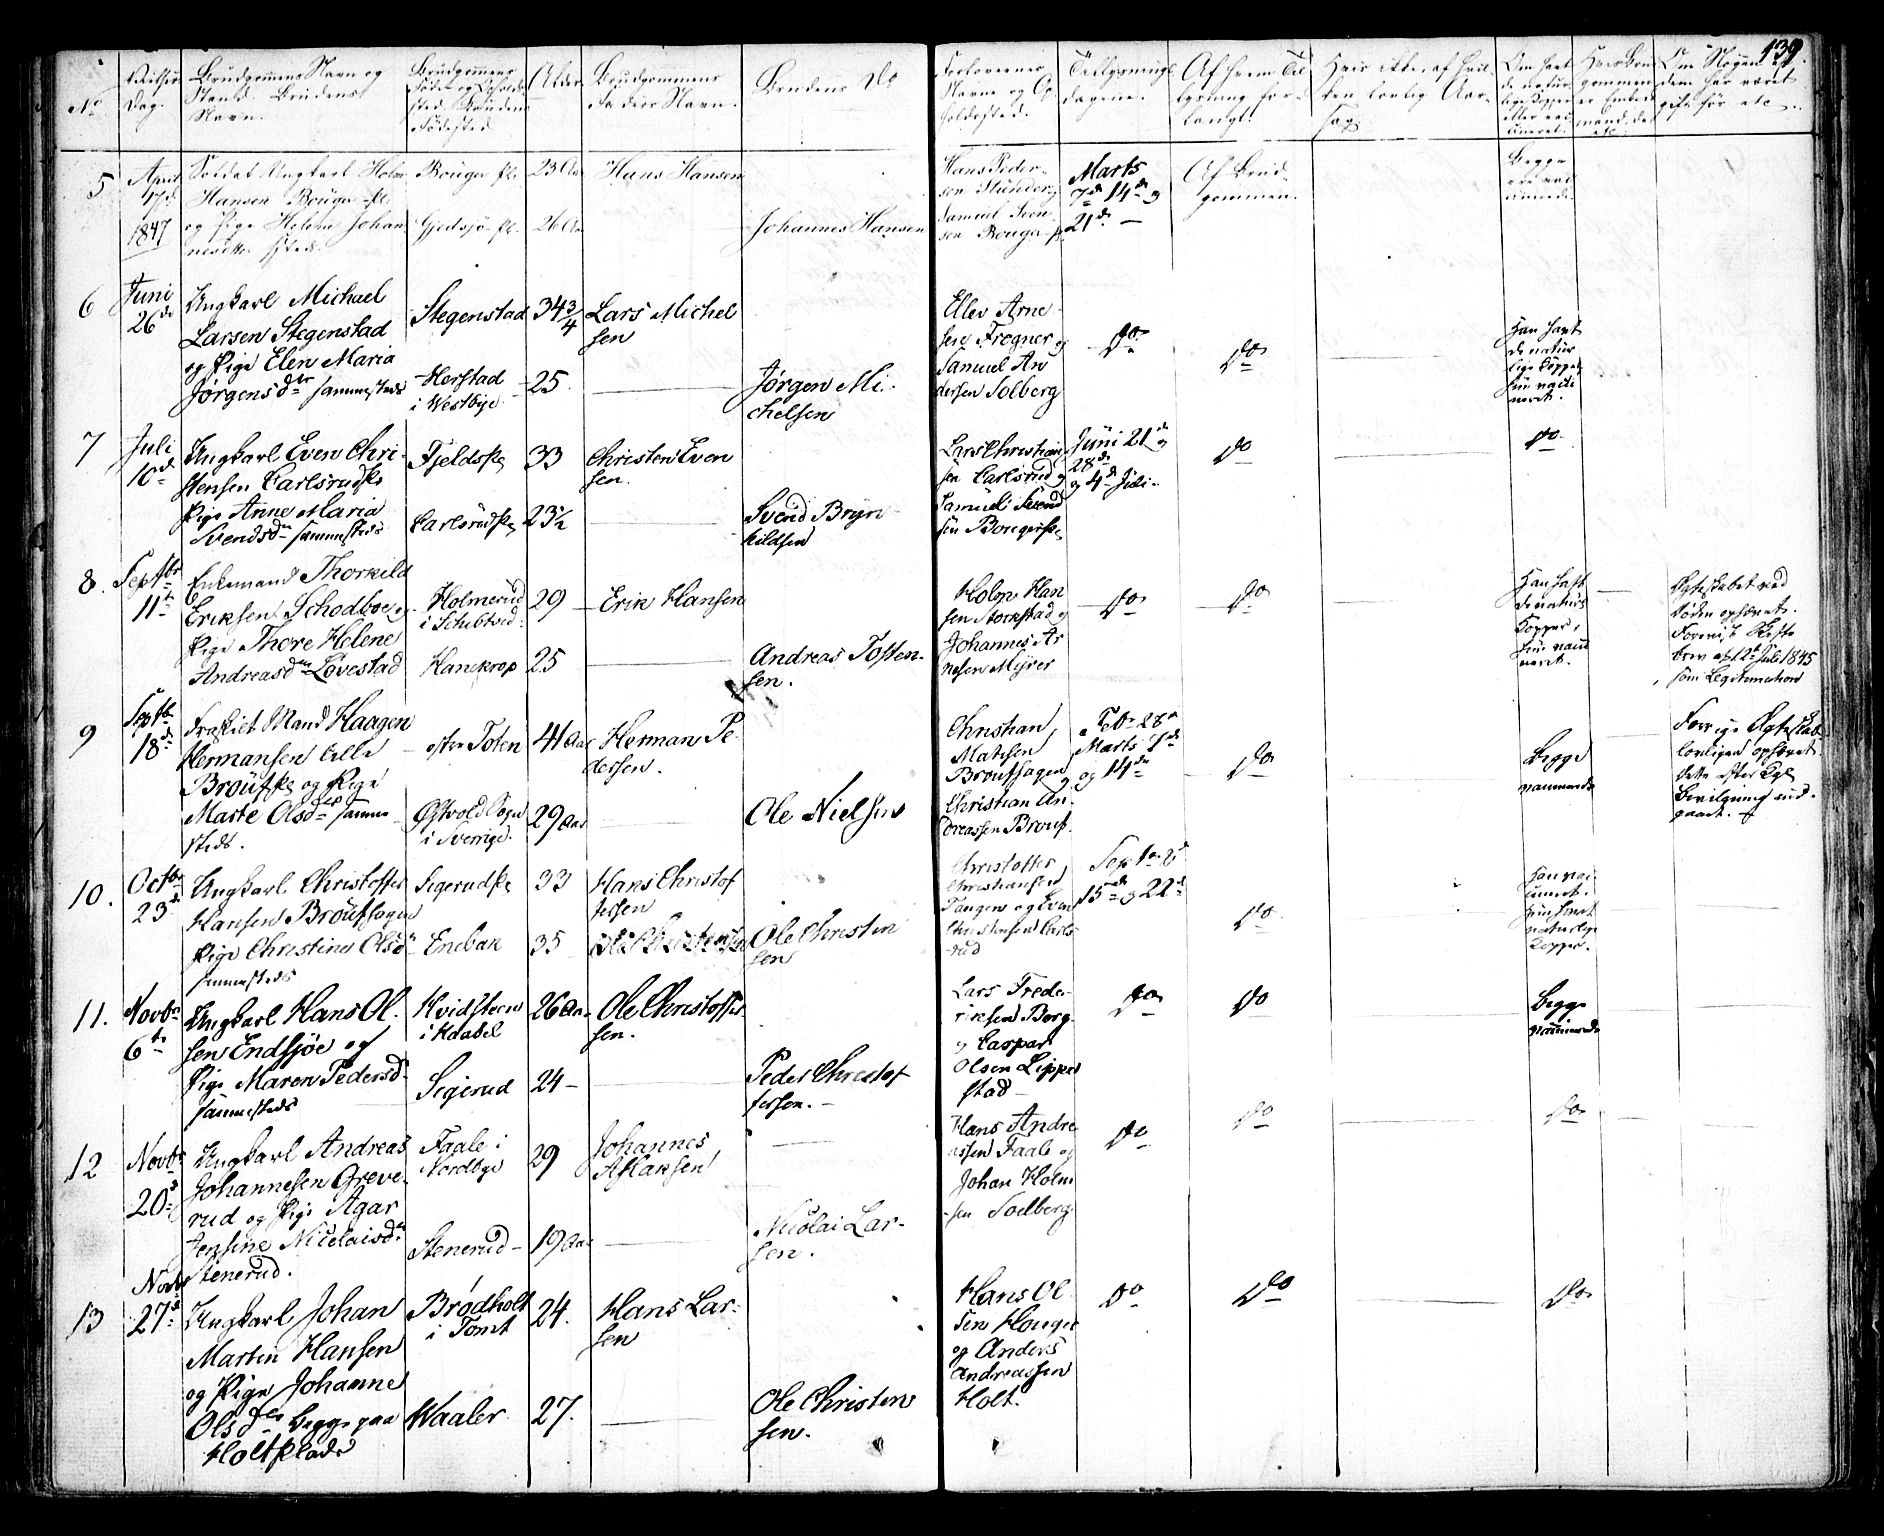 139.
No
Vielses
Dag.
Brudgommens Navn og
Stand. Brudens
Navn.
Brudgommens
Føde og Opholds
sted. Brudens
Fødested
Alder
Brudgommens
Faders Navn.
Brudens Do
Forlovernes
Navne og Op
holdssted.
Tillysnings
dagene.
Af hvem Til
lysning for-
langt.
Hvis ikke, af hvil
ken lovlig Aar-
sag.
Om havt
de natur
lige Kopper
eller vac
cineret.
Om Nogen af
dem har været
gift før etc.
5
April
17de
1847
Soldat Ungkarl Holm
Hansen Bouger pl.
og Pige Helene Johan
nesdtr. steds.
Bouger pl.
Gjedsjø pl.
23 Aar
26 Aar
Hans Hansen
Johannes Hansen
Hans Peder-
sen
Samuel Sven
sen Bouger pl.
Marts
7de 14de og
21de
Af Brud-
gommen.
Begge
ere vac
cinerede.
6
Juni
26de
Ungkarl Michael
Larsen Stegenstad
og Pige Elen Maria
Jørgensdtr sammesteds
Stegenstad
Herstad
i Westbye
34 3/4
25.
Lars Michel
sen
Jørgen Mi-
chelsen
Ellev Arne
sen Frogner og
Samuel An
dersen Solberg
Do
Do
Han havt
de natur
lige Kopper
hun vacci
neret.
7
Juli
10de
Ungkarl Even Chri-
stensen Carlsrudpl.
Pige Anne Maria
Svendsdtr sammesteds
Fjeldspl.
Carlsrudpl.
33
23½
Christen Even
sen.
Svend Bryn
hildsen
Lars Christian
sen Carlsrud og
Samuel Svend
sen Bougerpl.
Juni 21de og
28de
og 4de Juli.
Do
Do
8.
Septbr
11te
Enkemand Thorkild
Eriksen Schodboe og
Pige Thore Helene
Andreasdtr Lovestad
Holmerud
i Schibtved
Hanekrop
29
25
Erik Hansen
Andreas Tosten-
sen.
Holm Han
sen Storkstad og
Johannes Ar
nesen Myrer
Do
Do
Han havt
de naturl
Kopper,
hun vacci
neret.
Ægteskabet ved
Døden ophævet.
Forevist Skifte
brev af 12te Juli 1845
som Legitimation
9
Septbr
18de
Fraskilt Mand Haagen
Hermansen Lille
Broutpl. og Pige
Marte Olsdtr samme
steds.
østre Toten
Østvold Sogn
i Sverrige.
41 Aar
29 Aar
Herman Pe-
dersen.
Ole Nielsen
Christian
Matisen
Brouthagen og
Christian An-
dreassen Brout.
Feb. 28de
Marts 7de
og 14de
Do
Begge
vaccinerede
Forrige Ægteskab
lovligen ophævet
dette efter Kgl
Bevilgning ind-
gaaet.
10.
Octbr
23de
Ungkarl Christoffer
Hansen Brouthagen
Pige Christine Olsdtr
sammesteds
Sigerudpl.
Enebak
33
35
Hans Christof
fersen
Ole Christen
sen
Christoffer
Christiansen
Tangen og Even
Christensen Carls-
rud
Sept.
15de og 22de
Do
Han vac
cineret.
hun havt
naturlige
Kopper.
11.
Novbr
6te
Ungkarl Hans Ol-
sen Endsjøe og
Pige Maren Pedersd
sammesteds
Hvidsteen
i Krabel
Sigerud
26 Aar
24
Ole Christoffer
sen.
Peder Christof
fersen.
Lars Frede-
riksen Berg
og Caspar
Olsen Lippe
stad
Do
Do
Begge
vaccinerede
12
Novbr
20de
Ungkarl Andreas
Johannesen Greve-
rud og Pige Agar
Jensine Nicolaisdtr
Stenerud.
Faale i
Nordbye
Stenerud
29
19 Aar
Johannes
Aslaksen
Nicolai Lar-
sen.
Hans Andre
assen Faale og
Johan Holm
sen Solberg
Do
Do
Do
13
Novbr
27de
Ungkarl Johan
Martin Hansen
og Pige Johanne
Olsdtr begge paa
Holtplads
Brødholt
i Tomt
Waaler
24.
27.
Hans Lar-
sen
Ole Christen
sen.
Hans Ol
sen Houger
og Anders
Andreassen
Holt.
Do
Do
Do